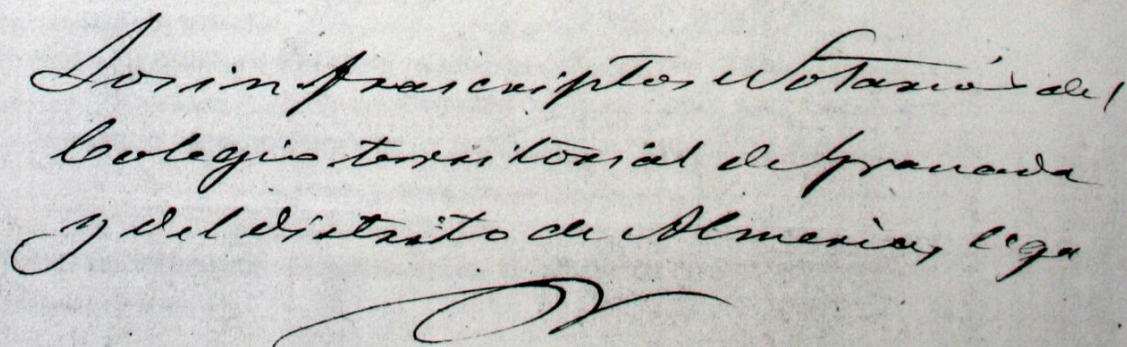 Los infrascriptos Notarios del
Colegio territorial de Granada
y del distrito de Almeria, lega